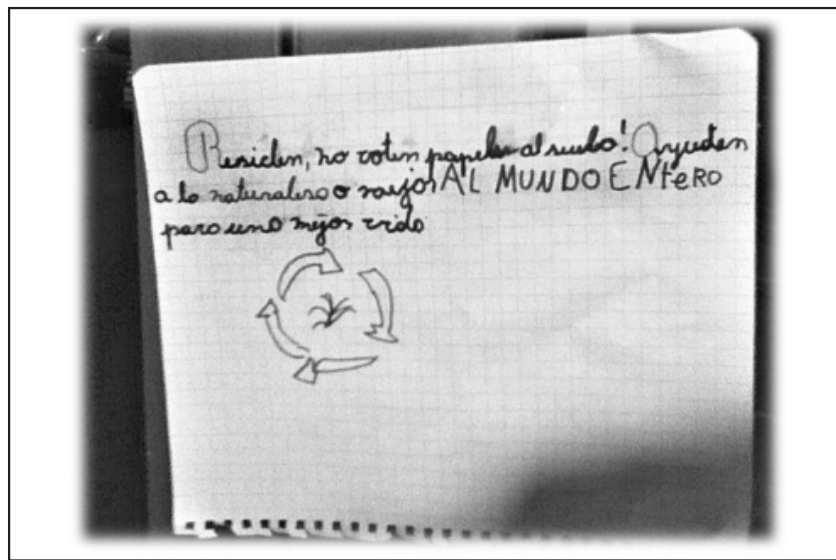 Resiclen, no voten papeles al suelo! Ayuden
a la naturaleza o mejor AL MUNDO ENteRO
para una mejor vida